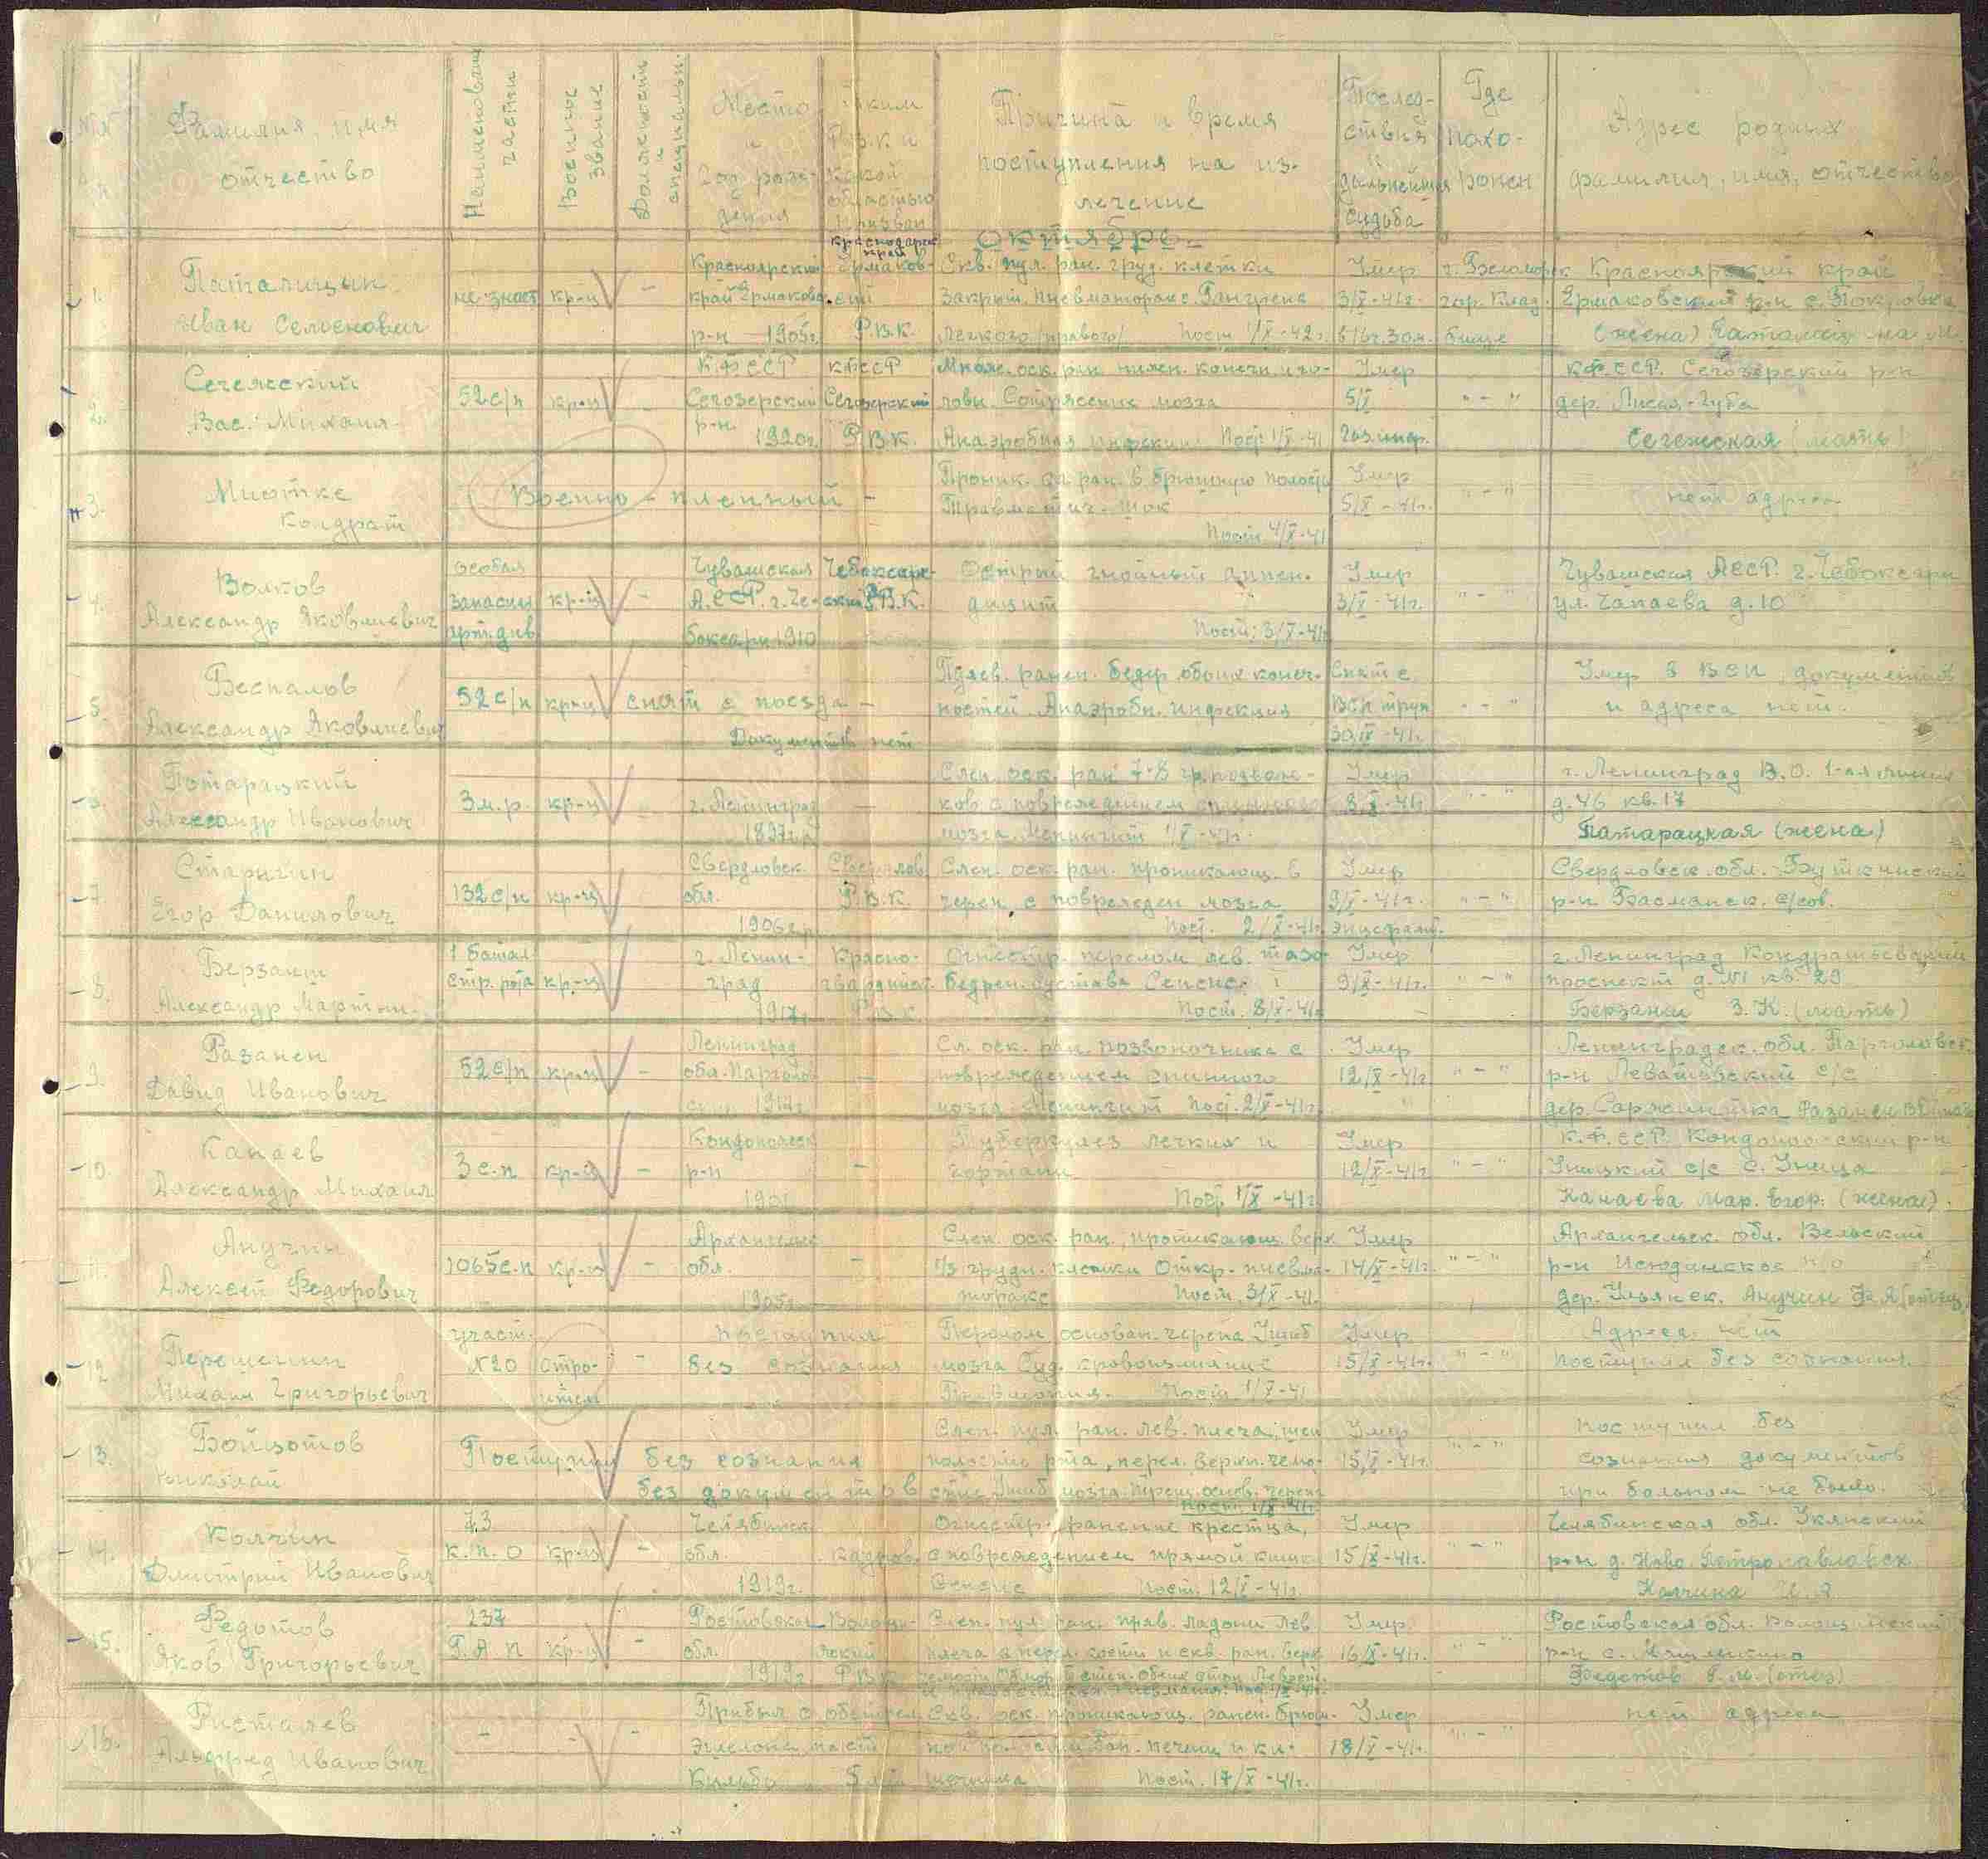 №№ п.п.
Фамилия, имя отчество
Наименование части
Военное звание
Должность и специальн.
Место и год рождения
Каким Р.В.К и какой областью призван
Причина и время поступления на излечение
Последствия дальнейшая судьба
Где похоронен
Адрес родных фамилия, имя, отчество
Октябрь
1. Паталицын
Иван Семенович
не знает кр-ц -
Красноярский
край Ермаковс.
р-н 1905г.
Красноярск край
Ермаковский
Р.В.К.
Скв. пул. ран. груд. клетки
Закрыт. пневматоракс. Гангрена
легкого (правого) Пост. 1/X-42г.
Умер
3/X-41г.
г. Беломорск
гор. кладбище
Красноярский край
Ермаковский р-н с. Покровка
(жена)
2. Сегежский
Вас. Михаил.
52 с/п кр-ц -
К.Ф.ССР
Сегозерский
р-н
1920г.
К.Ф.ССР
Сегозерский
Р.В.К.
Множ. оск. ран. нижн. конечн. и головы. Сотрясение мозга
Анаэробная инфекция Пост. 1/X-41
Умер
5/X
Газ. инф.
" - "
К.Ф.ССР. Сегозерский р-н
дер. Лисья-Губа
Сегежская (мать)
3. Миотке
Кондрат
Военно-пленный -
Проник. ран. в брюшную полость
Травматич. шок
Пост. 4/X-41
Умер
5/X-41г.
" - "
нет адреса
4. Волков
Александр Яковлевич
особая
запасны
арт. див
кр-ц -
Чувашская
А.ССР. г. Чебоксары 1910
Чебоксарский Р.В.К.
Острый гнойный аппендицит
Пост. 3/X-41г
Умер
3/X-41г.
" - "
Чувашская АССР. г. Чебоксары
ул. Чапаева д. 10
5. Беспалов
Александр Яковлевич
52 с/п кр-ц снят с поезда -
Документов нет
ранен. бедер обоих конечностей. Анаэробн. инфекция
Снят с
ВСП труп
30/IX-41г.
" - "
Умер в ВСП, документов
и адреса нет.
6. Потарацкий
Александр Иванович
3 м.р. кр-ц -
г. Ленинград
1897г.р.
-
Слеп. оск. ран. 7-8 гр. позвонков с повреждением спинного
мозга. Менингит 1/X-41г.
Умер
8/X-41г
" - "
г. Ленинград В.О. 1-ая линия
д. 46 кв. 17
Патарацкая (жена)
7. Старыгин
Егор Данилович
132 с/п кр-ц
Свердловск.
обл.
1906г.р
Свердлов.
Р.В.К.
Слеп. оск. ран. проникающ. в
череп, с поврежден мозга
Пост. 2/X-41г.
Умер
9/X-41г.
энцефалит.
" - "
Свердловск. обл. Буткинский
р-н Басманск. с/сов.
8. Берзаит
Александр Мартын.
1 батал
стр. рота
кр-ц
г. Ленинград
1917г.
Красногвардейск.
Р.В.К.
Огнестр. перелом лев. тазобедрен. сустава Сепсис.
Пост. 8/X-41г
Умер
9/X-41г.
" - "
г. Ленинград Кондратьевский
проспект кв. 29
З.К. (мать)
9. Разанен
Давид Иванович
52 с/п кр-ц -
Ленинград
обл. Парголо
1917г.
-
Сл. оск. ран. позвоночника с
повреждением спинного
мозга. Менингит Пост. 2/X-41г.
Умер
12/X-41г
" - "
Ленинградск. обл. Парголовск.
р-н Левашовский с/с
дер.
10. Канаев
Александр Михаил.
3 с.п кр-ц -
Кондопожск
р-н
1901
-
Туберкулез легких и
гортани
Пост. 1/X-41г.
Умер
12/X-41г
" - "
К.Ф.ССР. Кондопожский р-н
Уницкий с/с с. Уница
Канаева Мар. Егор. (жена).
11. Анучин
Алексей Федорович
1065 с.п кр-ц -
Архангельс
обл.
1905г.
-
Слеп. оск. ран., проникающ. верх
1/3 грудн. клетки Откр. пневматоракс Пост. 3/X-41.
Умер
14/X-41г.
" - "
Архангельск. обл. Вельский
р-н
дер. Ульянск. Анучин Ф.Я (отец)
12. Перешеин
Михаил Григорьевич
участ.
№20
строитель
-
поступил
без сознания
Перелом основан. черепа Ушиб
мозга Суд. кровоизлияние
Пневмония. Пост. 1/X-41
Умер
15/X-41г.
" - "
Адреса нет
поступил без сознания.
13. Бойцотов
Николай
Поступил без сознания
без документов
Слеп. пул. ран. лев. плеча, шеи
полости рта, перел. верхн. челюсти Ушиб мозга. Трещ. основ. черепа
Пост. 1/X-41г.
Умер
15/X-41г.
" - "
поступил без
сознания документов
при больном не было.
14. Колчин
Дмитрий Иванович
73
к.п.о кр-ц -
Челябинск
обл.
1919г.
кадров.
Огнестр. ранение крестца,
с повреждением прямой кишк
Сепсис Пост. 12/X-41г.
Умер
15/X-41г.
" - "
Челябинская обл. Укянский
р-н д. Ново Петропавловск
Колчина
15. Федотов
Яков Григорьевич
237
Г.А.П кр-ц -
Ростовская
обл.
1919г
Р.В.К
Слеп. пул. ран. прав. ладони лев
плеча с перел. кости и скв. ран. верх
Умер
16/X-41г.
" - "
Ростовская обл.
р-н с.
Федотов (отец)
16. Ристалев
Альфред Иванович
- - -
Прибыл с
эшелона
Скв. оск. проникающ. ранен. брюшной ран. печени и кишечника Пост. 17/X-41г.
Умер
18/X-41г.
" - "
нет адреса